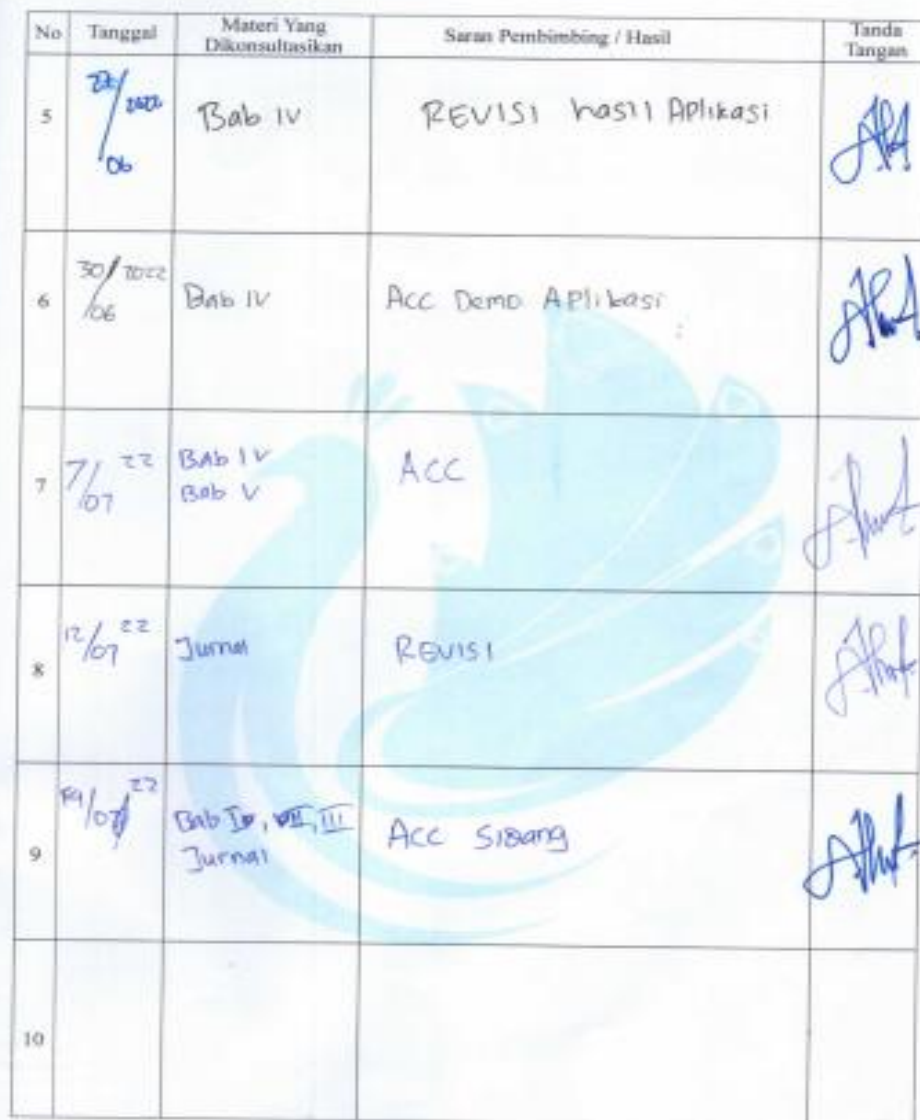 No Tanggal Materi Yang Dikonsultasikan Saran Pembimbing / Hasil Tanda Tangan
5 /2022 /06 Bab IV REVISI hasil Aplikasi
6 30/2022 /06 Bab IV Acc Demo Aplikasi
7 7/07 22 Bab IV ACC
Bab V
8 12/07 22 Jurnal REVISI
9 /07 22 Bab III Acc Sidang
Jurnal
10